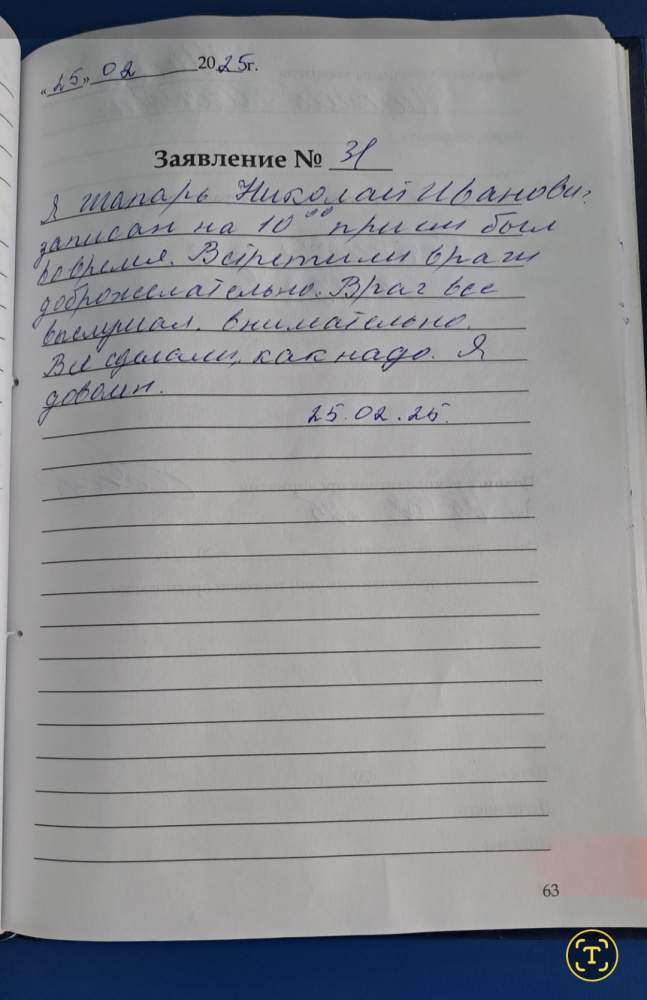 «25» 02 2025г.
Заявление № 31
Я Шапарь Николай Иванович
записан на 10⁰⁰ прием был
вовремя. Встретили врачи
доброжелательно. Врач все
выслушал. внимательно.
Все сделали, как надо. Я
доволен.
25.02.25.
63